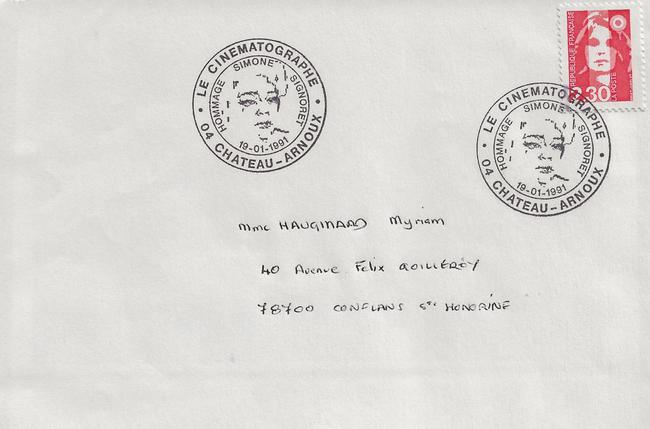 · LE CINEMATOGRAPHE ·
HOMMAGE SIMONE SIGNORET
19-01-1991
04 CHATEAU-ARNOUX
REPUBLIQUE FRANÇAISE
2,30
LA POSTE
· LE CINEMATOGRAPHE ·
HOMMAGE SIMONE SIGNORET
19-01-1991
04 CHATEAU-ARNOUX
Mme Myriam
40 Avenue Felix
78700 CONFLANS Ste HONORINE